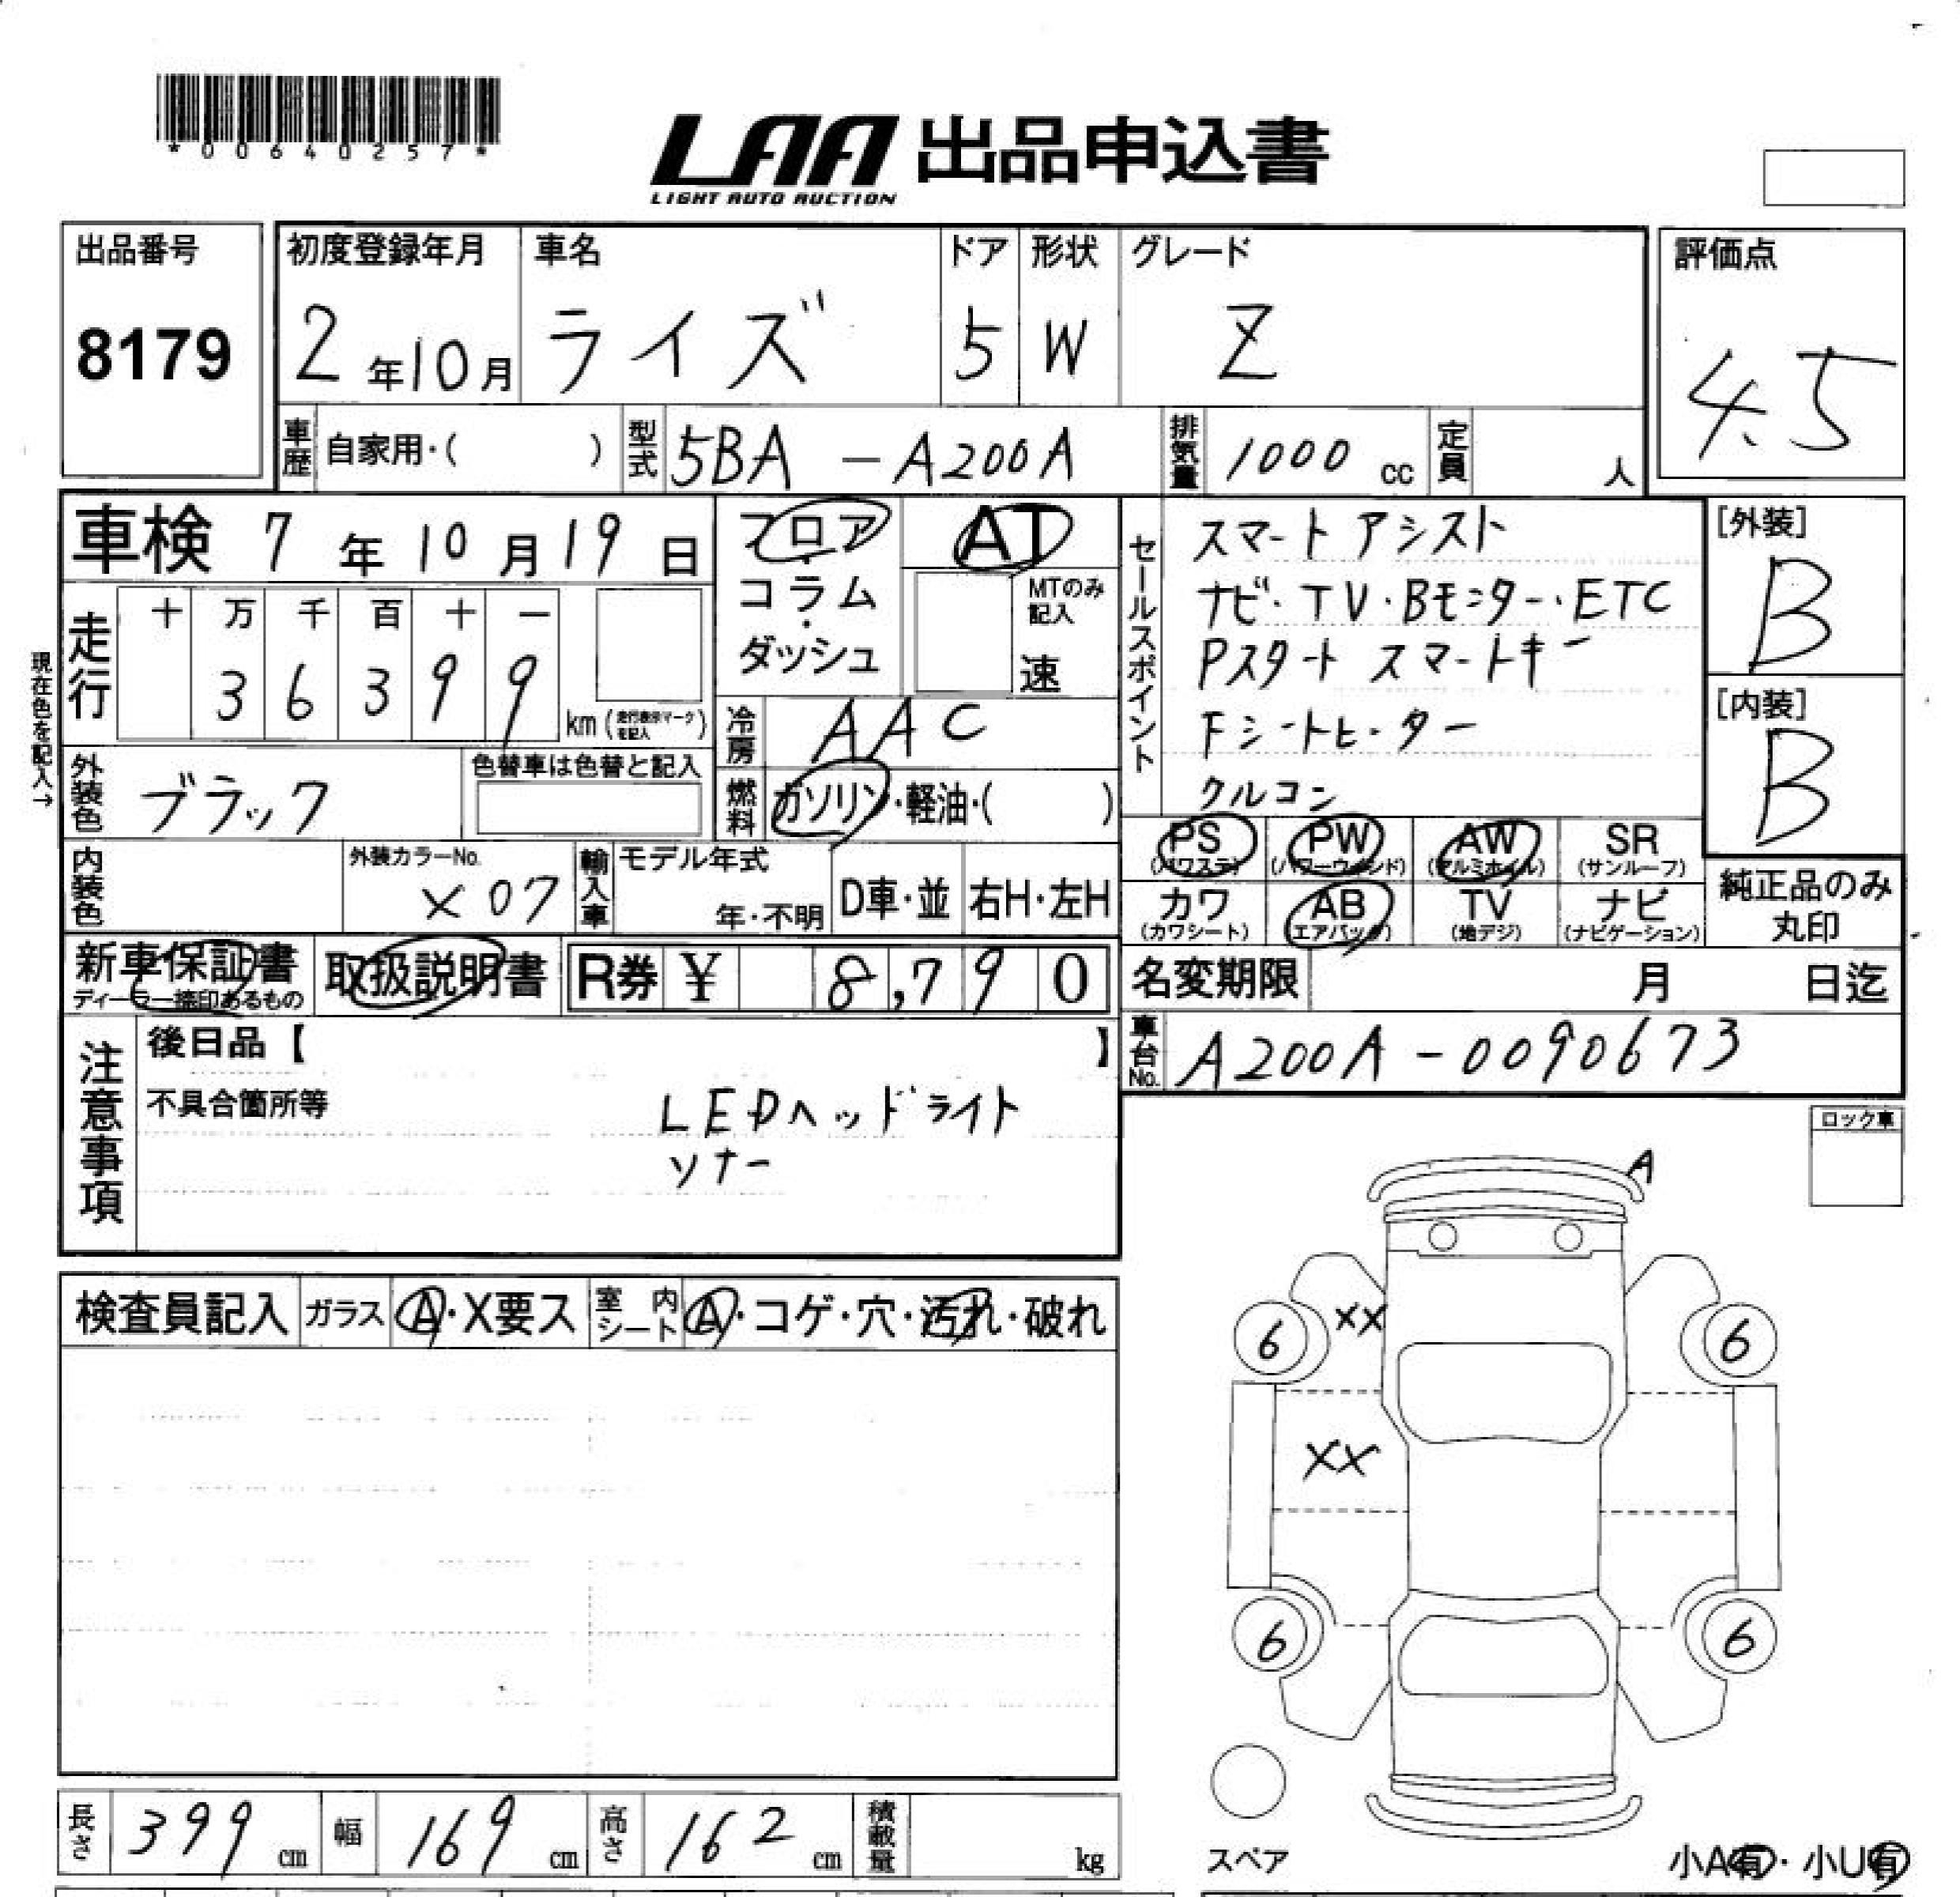 *00640257*
LAA 出品申込書
LIGHT AUTO AUCTION
出品番号
8179
初度登録年月
2年10月
車名
ライズ
ドア
5
形状
W
グレード
Z
評価点
4.5
車歴 自家用・( )
型式 5BA - A200A
排気量 1000 cc
定員 人
車検 7年10月19日
フロア・コラム・ダッシュ
AT
MTのみ記入
速
走行
十 万 千 百 十 一
3 6 3 9 9
km(走行表示マークを記入)
現在色を記入→
外装色 ブラック
色替車は色替と記入
冷房 AAC
燃料 ガソリン・軽油・( )
内装色
外装カラーNo.
X07
輸入車 モデル年式
年・不明
D車・並
右H・左H
セールスポイント
スマートアシスト
ナビ・TV・Bモニター・ETC
Pスタート スマートキー
Fシートヒーター
クルコン
[外装]
B
[内装]
B
PS(パワステ) PW(パワーウィンド) AW(アルミホイル) SR(サンルーフ)
カワ(カワシート) AB(エアバック) TV(地デジ) ナビ(ナビゲーション)
純正品のみ丸印
新車保証書
ディーラー捺印あるもの
取扱説明書
R券 ¥ 8,790
名変期限 月 日迄
車台No. A200A-0090673
注意事項
後日品【 】
不具合箇所等
LEDヘッドライト
ソナー
ロック車
A
検査員記入 ガラス A・X要ス 室内シート A・コゲ・穴・汚れ・破れ
6 XX 6
XX
6 6
スペア
小A有・小U有
長さ 399 cm 幅 169 cm 高さ 162 cm 積載量 kg